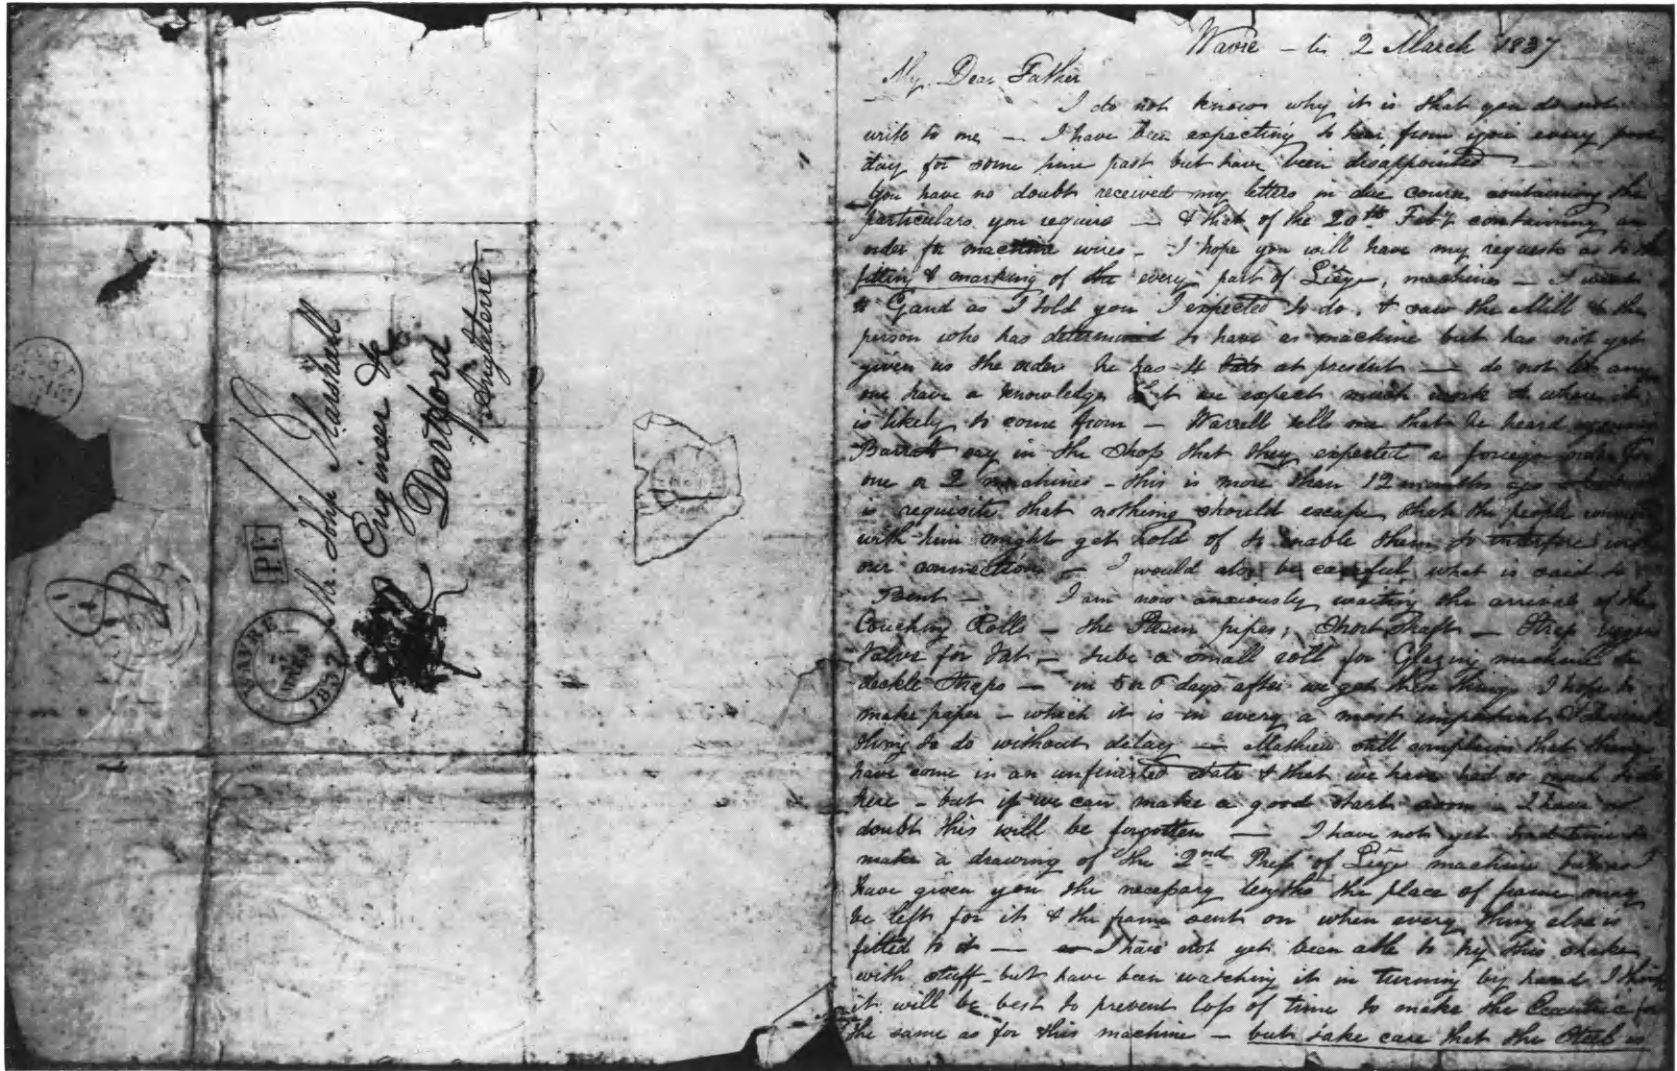 WAVRE
1837
P.P.
Mr. John Marshall
Engineer &c
Dartford
Angleterre
Wavre – le 2 March 1837
My Dear Father
I do not know why it is that you do not
write to me — I have been expecting to hear from you every
day for some time past but have been disappointed —
You have no doubt received my letters in due course containing the
particulars you require — & that of the 20th Feby containing an
order for machine wires – I hope you will have my requests as to the
fitting & marking of the every part of Liege machines – I went
to Gand as I told you I expected to do, & saw the Mill & the
person who has determined to have a machine but has not yet
given us the order he has 4 Vats at present — do not let any
one have a knowledge that we expect much work & where it
is likely to come from – Warrell tells me that he heard
Barratt say in the shop that they expected a foreign order for
one or 2 machines – this is more than 12 months ago –
is requisite that nothing should escape that the people
with him might get hold of to enable them to interfere with
our connection – I would also be careful what is said to
Bent — I am now anxiously waiting the arrival of the
Couching Rolls – the Steam pipes, Short Shaft – Strap
Valve for Vat – tube & small roll for Glazing machine &
deckle Straps — in 5 or 6 days after we get these things I hope to
make paper – which it is in every a most important &
thing to do without delay — Mathieu still complains that things
have come in an unfinished state & that we have had so much to do
here – but if we can make a good start soon – I have no
doubt this will be forgotten — I have not yet had time to
make a drawing of the 2nd Press of Liege machine but as I
have given you the necessary lengths the place of frame may
be left for it & the frame sent on when every thing else is
fitted to it — I have not yet been able to try this shake
with stuff – but have been watching it in turning by hand I think
it will be best to prevent loss of time to make the Eccentric for
the same as for this machine – but take care that the Steel is